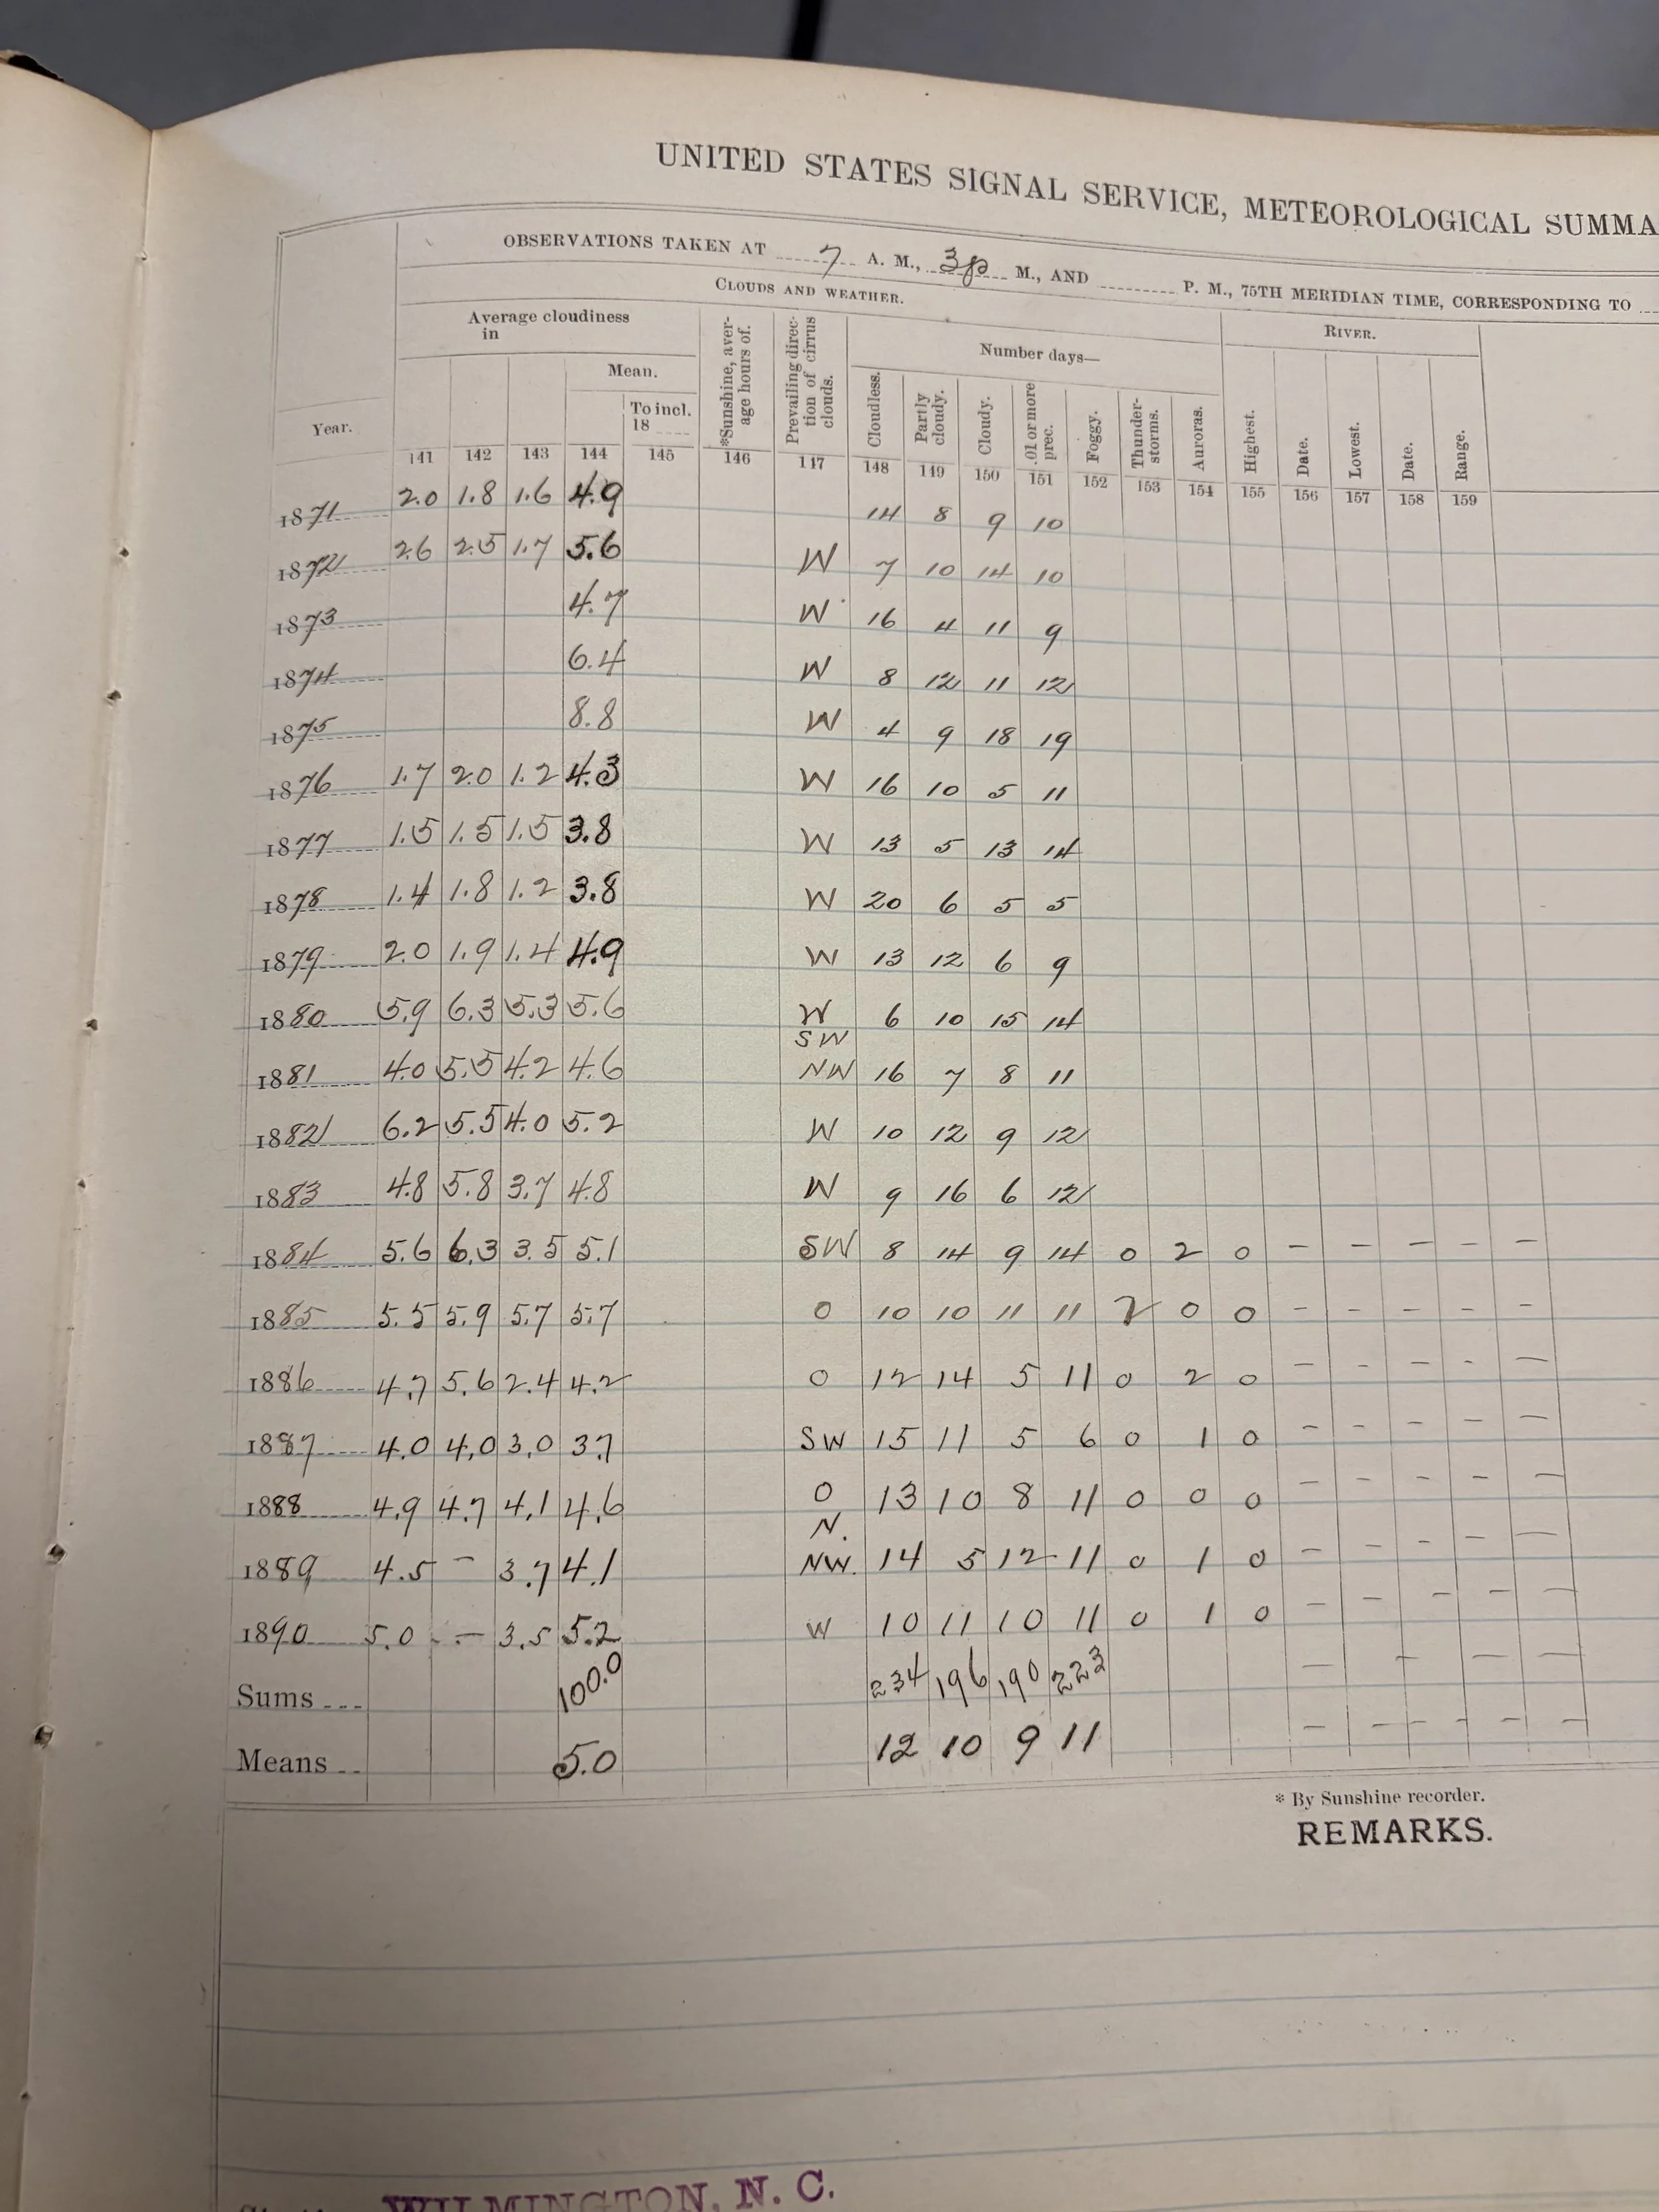 UNITED STATES SIGNAL SERVICE, METEOROLOGICAL SUMMA
OBSERVATIONS TAKEN AT 7 A. M., 3p M., AND P. M., 75TH MERIDIAN TIME, CORRESPONDING TO
CLOUDS AND WEATHER.
RIVER.
Average cloudiness in
Mean.
To incl. 18
*Sunshine, average hours of.
Prevailing direction of cirrus clouds.
Number days—
Cloudless.
Partly cloudy.
Cloudy.
.01 or more prec.
Foggy.
Thunder-storms.
Auroras.
Highest.
Date.
Lowest.
Date.
Range.
Year.
141 142 143 144 145 146 147 148 149 150 151 152 153 154 155 156 157 158 159
1871 2.0 1.8 1.6 4.9 14 8 9 10
1872 2.6 2.5 1.7 5.6 W 7 10 14 10
1873 4.7 W 16 4 11 9
1874 6.4 W 8 12 11 12
1875 8.8 W 4 9 18 19
1876 1.7 2.0 1.2 4.3 W 16 10 5 11
1877 1.5 1.5 1.5 3.8 W 13 5 13 14
1878 1.4 1.8 1.2 3.8 W 20 6 5 5
1879 2.0 1.9 1.4 4.9 W 13 12 6 9
1880 5.9 6.3 5.3 5.6 W 6 10 15 14
1881 4.0 5.5 4.2 4.6 SW NW 16 7 8 11
1882 6.2 5.5 4.0 5.2 W 10 12 9 12
1883 4.8 5.8 3.7 4.8 W 9 16 6 12
1884 5.6 6.3 3.5 5.1 SW 8 14 9 14 0 2 0 – – – – –
1885 5.5 5.9 5.7 5.7 0 10 10 11 11 2 0 0 – – – – –
1886 4.7 5.6 2.4 4.2 0 12 14 5 11 0 2 0 – – – – –
1887 4.0 4.0 3.0 3.7 SW 15 11 5 6 0 1 0 – – – – –
1888 4.9 4.7 4.1 4.6 0 13 10 8 11 0 0 0 – – – – –
1889 4.5 – 3.7 4.1 N. NW. 14 5 12 11 0 1 0 – – – – –
1890 5.0 – 3.5 5.2 W 10 11 10 11 0 1 0 – – – – –
Sums 100.0 234 196 190 223 – – – –
Means 5.0 12 10 9 11 – – – – – –
* By Sunshine recorder.
REMARKS.
WILMINGTON, N. C.